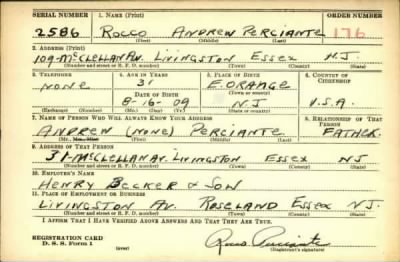 SERIAL NUMBER 1. NAME (Print) ORDER NUMBER
2586 ROCCO ANDREW PERCIANTE 176
(First) (Middle) (Last)
2. ADDRESS (Print)
109-McCLELLAN AV. LIVINGSTON ESSEX N.J.
(Number and street or R. F. D. number) (Town) (County) (State)
3. TELEPHONE 4. AGE IN YEARS 5. PLACE OF BIRTH 6. COUNTRY OF CITIZENSHIP
31 E. ORANGE
NONE DATE OF BIRTH (Town or county)
8-16-09 NJ U.S.A.
(Exchange) (Number) (Mo.) (Day) (Yr.) (State or country)
7. NAME OF PERSON WHO WILL ALWAYS KNOW YOUR ADDRESS 8. RELATIONSHIP OF THAT PERSON
ANDREW (NONE) PERCIANTE FATHER.
(Mr., Mrs., Miss) (First) (Middle) (Last)
9. ADDRESS OF THAT PERSON
31-McCLELLAN AV. LIVINGSTON ESSEX NJ
(Number and street or R. F. D. number) (Town) (County) (State)
10. EMPLOYER'S NAME
HENRY BECKER & SON
11. PLACE OF EMPLOYMENT OR BUSINESS
LIVINGSTON AV. ROSELAND ESSEX NJ.
(Number and street or R. F. D. number) (Town) (County) (State)
I AFFIRM THAT I HAVE VERIFIED ABOVE ANSWERS AND THAT THEY ARE TRUE.
REGISTRATION CARD
D. S. S. Form 1 (over) Rocco Perciante
(Registrant's signature)